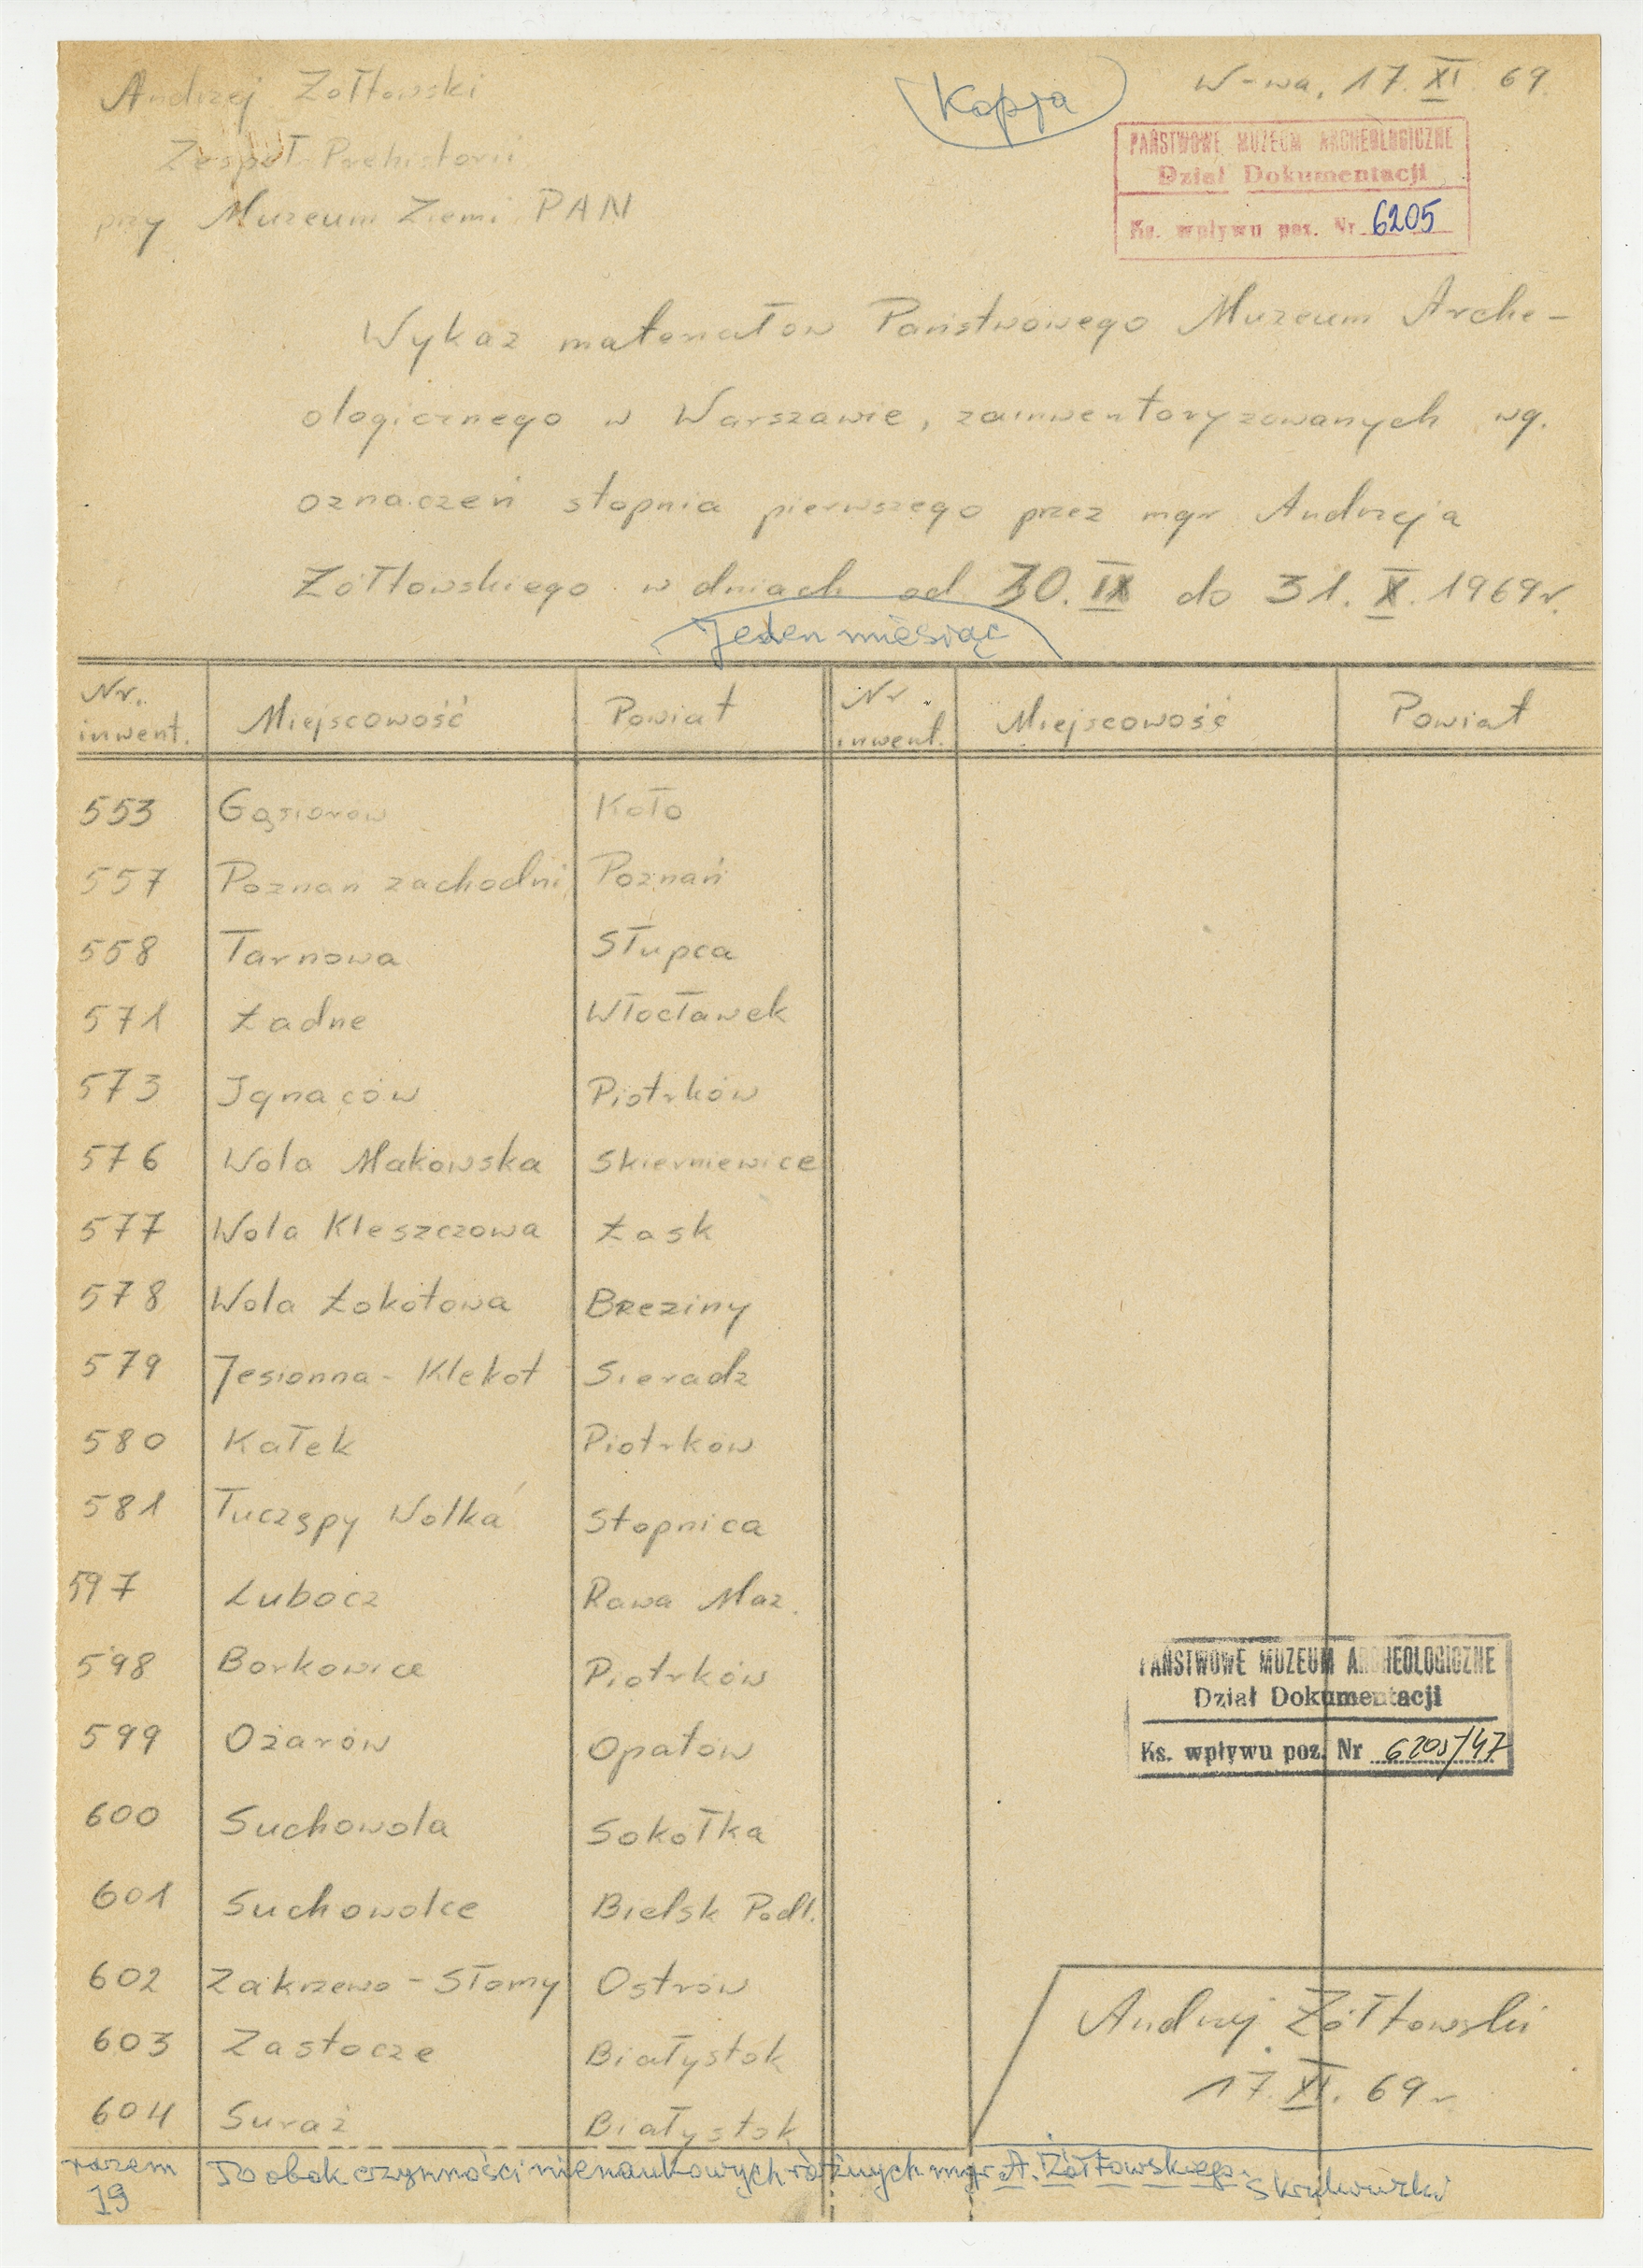 Andrzej Żółtowski
Kopja
W-wa, 17. XI. 69.
Zespół Prehistorii
przy Muzeum Ziemi PAN
PAŃSTWOWE MUZEUM ARCHEOLOGICZNE
Dział Dokumentacji
Ks. wpływu poz. Nr 6205
Wykaz materiałów Państwowego Muzeum Arche-
ologicznego w Warszawie, zainwentaryzowanych wg.
oznaczeń stopnia pierwszego przez mgr Andrzeja
Żółtowskiego w dniach od 30. IX do 31. X. 1969r.
Jeden miesiąc
Nr. inwent. Miejscowość Powiat Nr. inwent. Miejscowość Powiat
553 Gąsiorów Koło
557 Poznań zachodni Poznań
558 Tarnowa Słupca
571 Ładne Włocławek
573 Ignaców Piotrków
576 Wola Makowska Skierniewice
577 Wola Kleszczowa Łask
578 Wola Łokotowa Breziny
579 Jesionna - Klekot Sieradz
580 Kałek Piotrków
581 Tuczępy Wolka Stopnica
597 Lubocz Rawa Maz.
598 Borkowice Piotrków
599 Ożarów Opatów
600 Suchowola Sokołka
601 Suchowolce Bielsk Podl.
602 Zakrzewo - Słomy Ostrów
603 Zastocze Białystok
604 Suraż Białystok
PAŃSTWOWE MUZEUM ARCHEOLOGICZNE
Dział Dokumentacji
Ks. wpływu poz. Nr 6205/47
Andrzej Żółtowski
17. XI. 69 r
razem 19
To obok czynności nienaukowych różnych mgr A. Żółtowskiego.